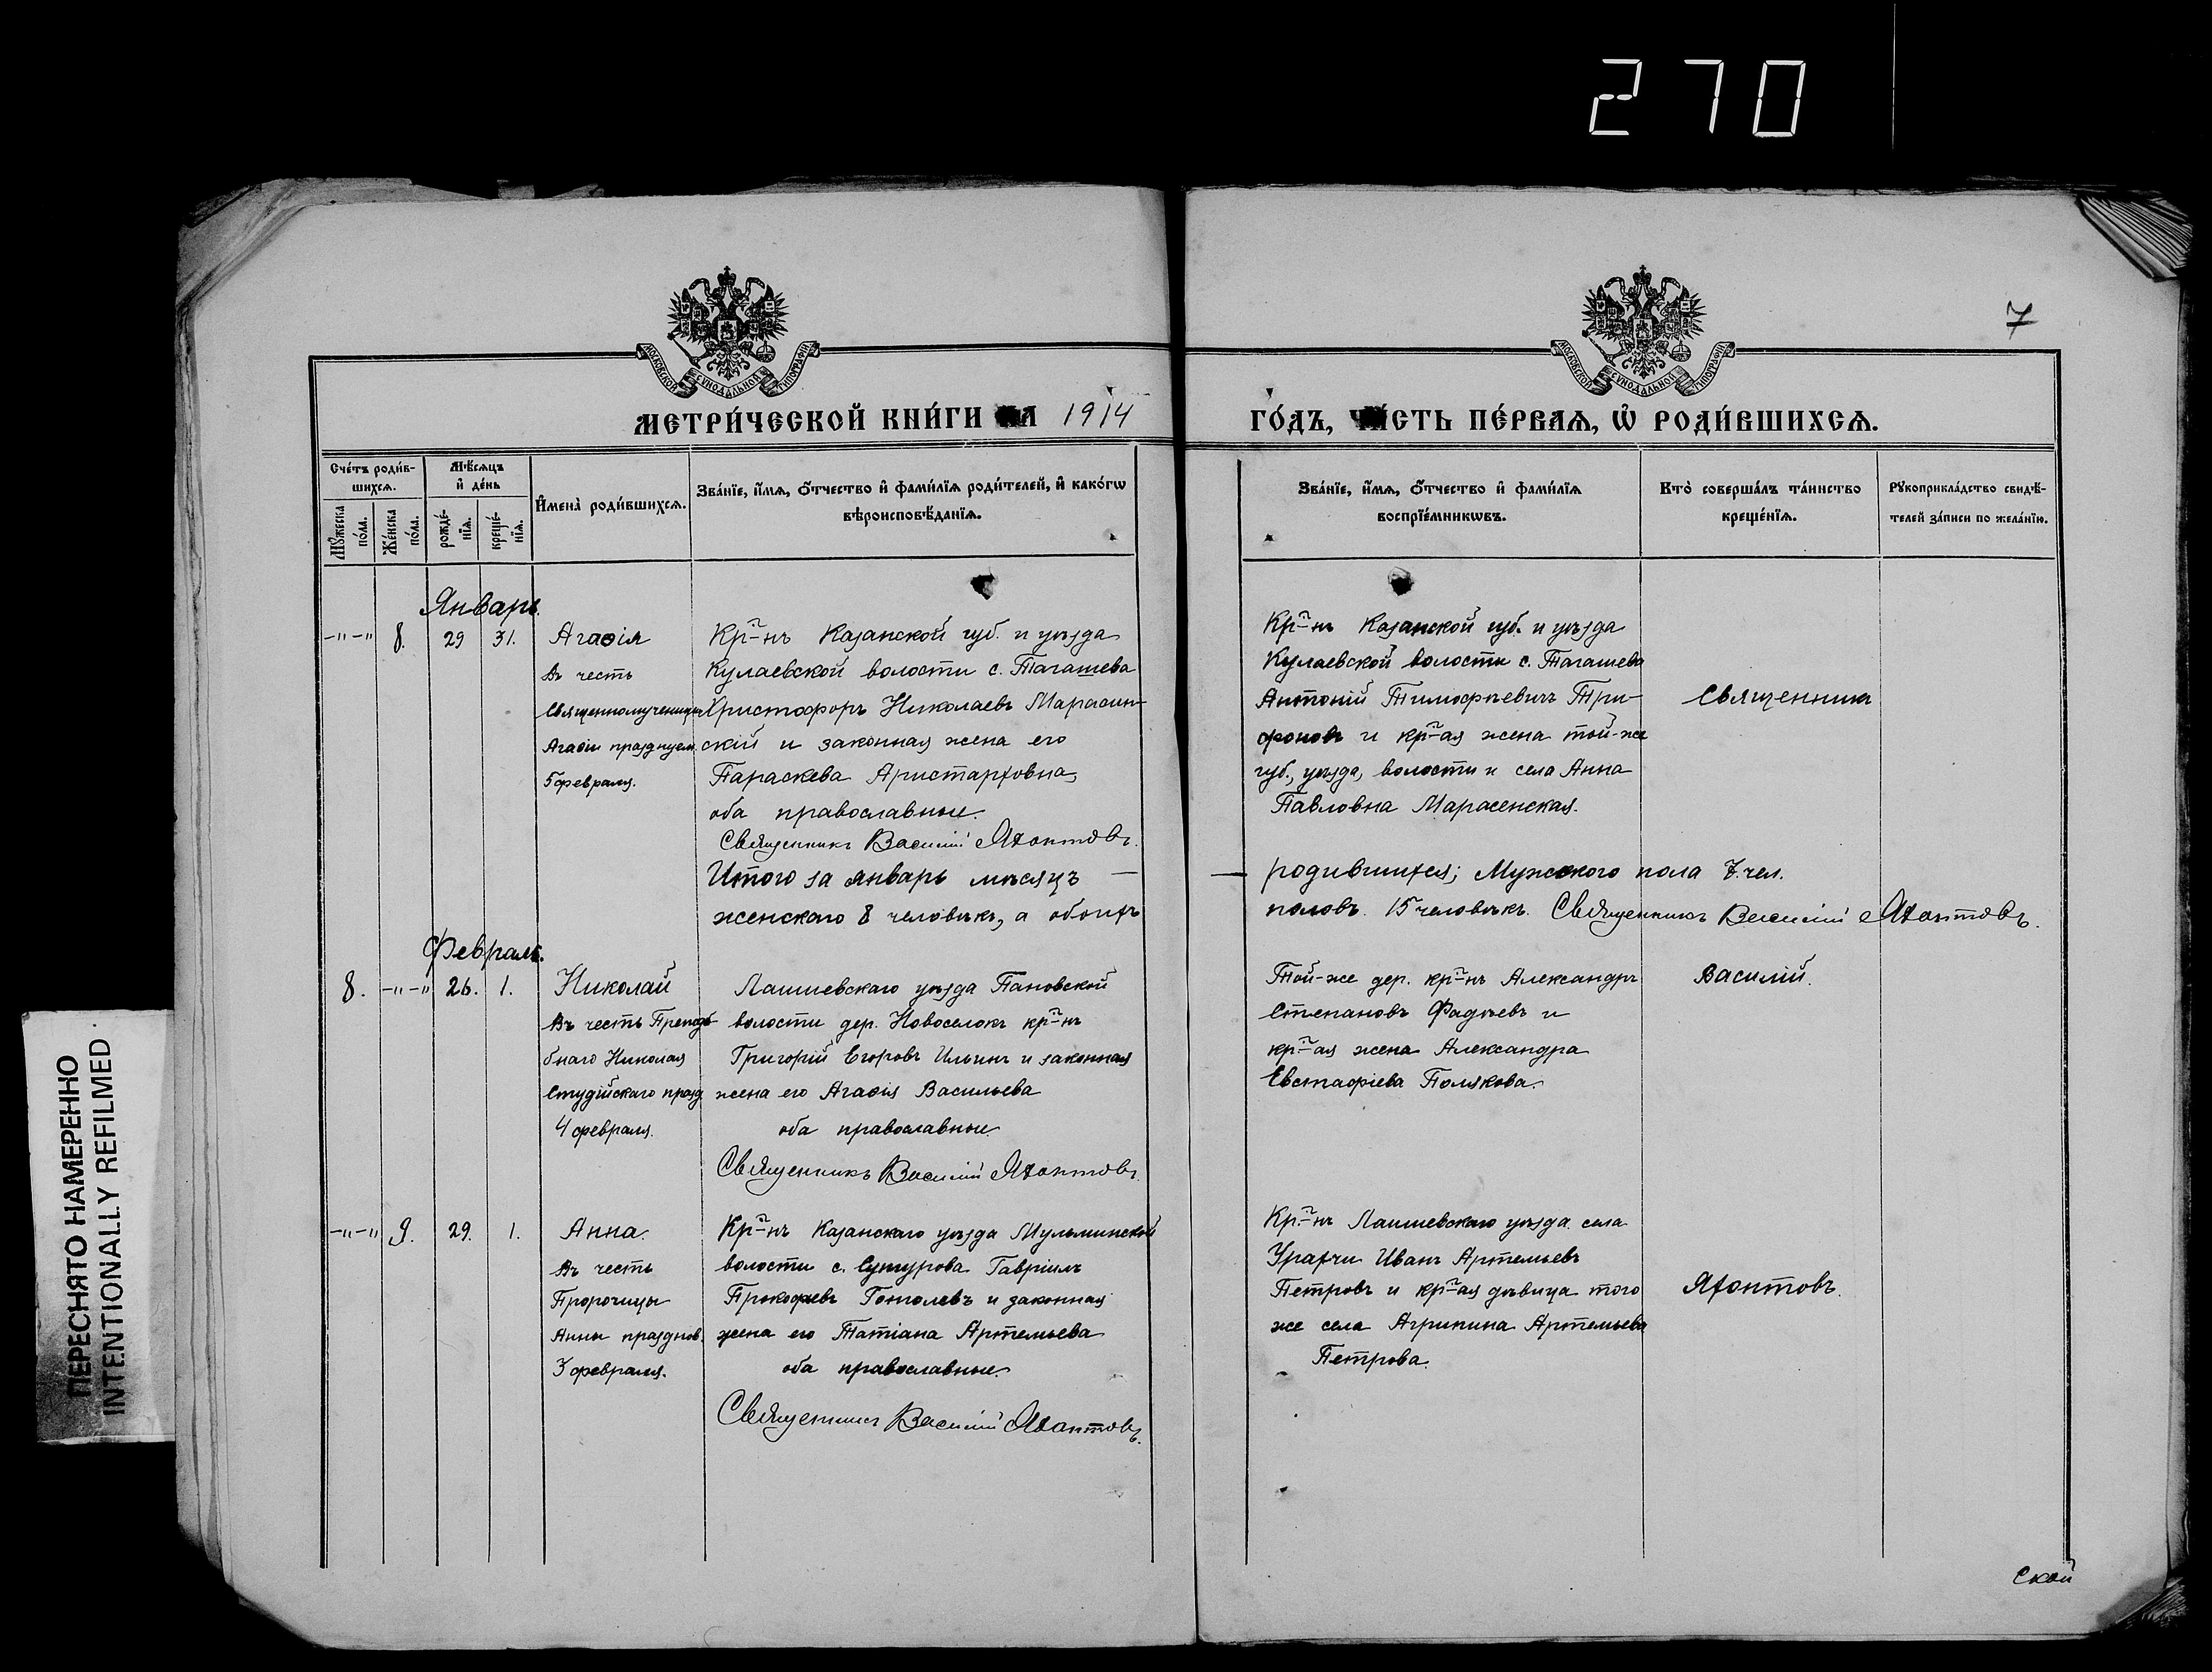 270
7
МОСКОВСКОЙ СУНОДАЛЬНОЙ ТИПОГРАФІИ
МОСКОВСКОЙ СУНОДАЛЬНОЙ ТИПОГРАФІИ
МЕТРИ́ЧЕСКОЙ КНИ́ГИ НА 1914
ГО́ДЪ, ЧА́СТЬ ПЕ́РВАЯ, Ѡ҆ РОДИ́ВШИХСЯ.
Сче́тъ роди́в-
шихся.
Мꙋ́жеска
по́ла.
Же́нска
по́ла.
Мѣ́сяцъ
и҆ де́нь
рожде́-
нїя.
креще́-
нїя.
И҆мена̀ роди́вшихся.
Зва́нїе, и҆́мя, ѻ҆́тчество и҆ фами́лїя роди́телей, и҆ како́гѡ
вѣроисповѣ́данїя.
Зва́нїе, и҆́мя, ѻ҆́тчество и҆ фами́лїя
воспрїе́мникѡвъ.
Кто̀ соверша́лъ та́инство
креще́нїя.
Рꙋкоприкла́дство свидѣ́-
телей за́писи по жела́нїю.
Январь.
-"-" 8. 29 31. Агаѳія
Въ честь
Священномученицы
Агаѳіи празднуем.
5 февраля.
Кр-нъ Казанской губ. и уѣзда
Кулаевской волости с. Тагашева
Христофоръ Николаевъ Марасин-
скій и законная жена его
Параскева Аристарховна,
оба православные.
Священникъ Василій Яхонтовъ.
Кр-нъ Казанской губ. и уѣзда
Кулаевской волости с. Тагашева
Антоній Тимофѣевичъ Три-
фоновъ и кр-ая жена той-же
губ., уѣзда, волости и села Анна
Павловна Марасенская.
Священник
Итого за январь мѣсяцъ —
— родившихся; Мужского пола 7. чел.
женскаго 8 человѣкъ, а обоихъ
половъ. 15 человѣкъ. Священникъ Василій Яхонтовъ.
Февраль.
8. -"-" 26. 1. Николай
Въ честь Преподо-
бнаго Николая
Студійскаго празд.
4 февраля.
Лаишевскаго уѣзда Пановской
волости дер. Новоселокъ кр-нъ
Григорій Егоровъ Ильинъ и законная
жена его Агаѳія Васильева
оба православные.
Священникъ Василій Яхонтовъ.
Той-же дер. кр-нъ Александръ
Степановъ Фадѣевъ и
кр-ая жена Александра
Евстафіева Полякова.
Василій.
-"-" 9. 29. 1. Анна.
Въ честь
Пророчицы
Анны празднов.
3 февраля.
Кр-нъ Казанскаго уѣзда Мульминской
волости с. Гавріилъ
Прокофьевъ и законная
жена его Татіана Артемьева
оба православные.
Священникъ Василій Яхонтовъ.
Кр-нъ Лаишевскаго уѣзда села
Урахчи Иванъ Артемьевъ
Петровъ и кр-ая дѣвица того
же села Агрипина Артемьева
Петрова.
Яхонтовъ.
ской
ПЕРЕСНЯТО НАМЕРЕННО
INTENTIONALLY REFILMED